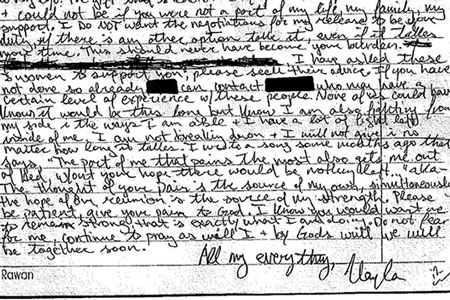 could not be if you were not a part of my life, my family, my
support. I DO NOT want the negotiations for my release to be your
duty, if there is any other option take it, even if it takes
more time. This should never have become your burden.
I have asked these
women to support you; please seek their advice. If you have
not done so already can contact who may have a
certain level of experience w/ these people. None of us could have
known it would be this long but know I am also fighting from
my side in the ways I am able + I have a lot of fight left
inside of me. I am not breaking down + I will not give in no
matter how long it takes. I wrote a song some months ago that
says, "The part of me that pains the most also gets me out
of bed, w/out your hope there would be nothing left..." aka-
The thought of your pain is the source of my own, simultaneously
the hope of our reunion is the source of my strength. Please
be patient, give your pain to God. I know you would want me
to remain strong. That is exactly what I am doing. Do not fear
for me, continue to pray as will I + by God's will we will
be together soon.
All my everything,
Kayla
Rawan